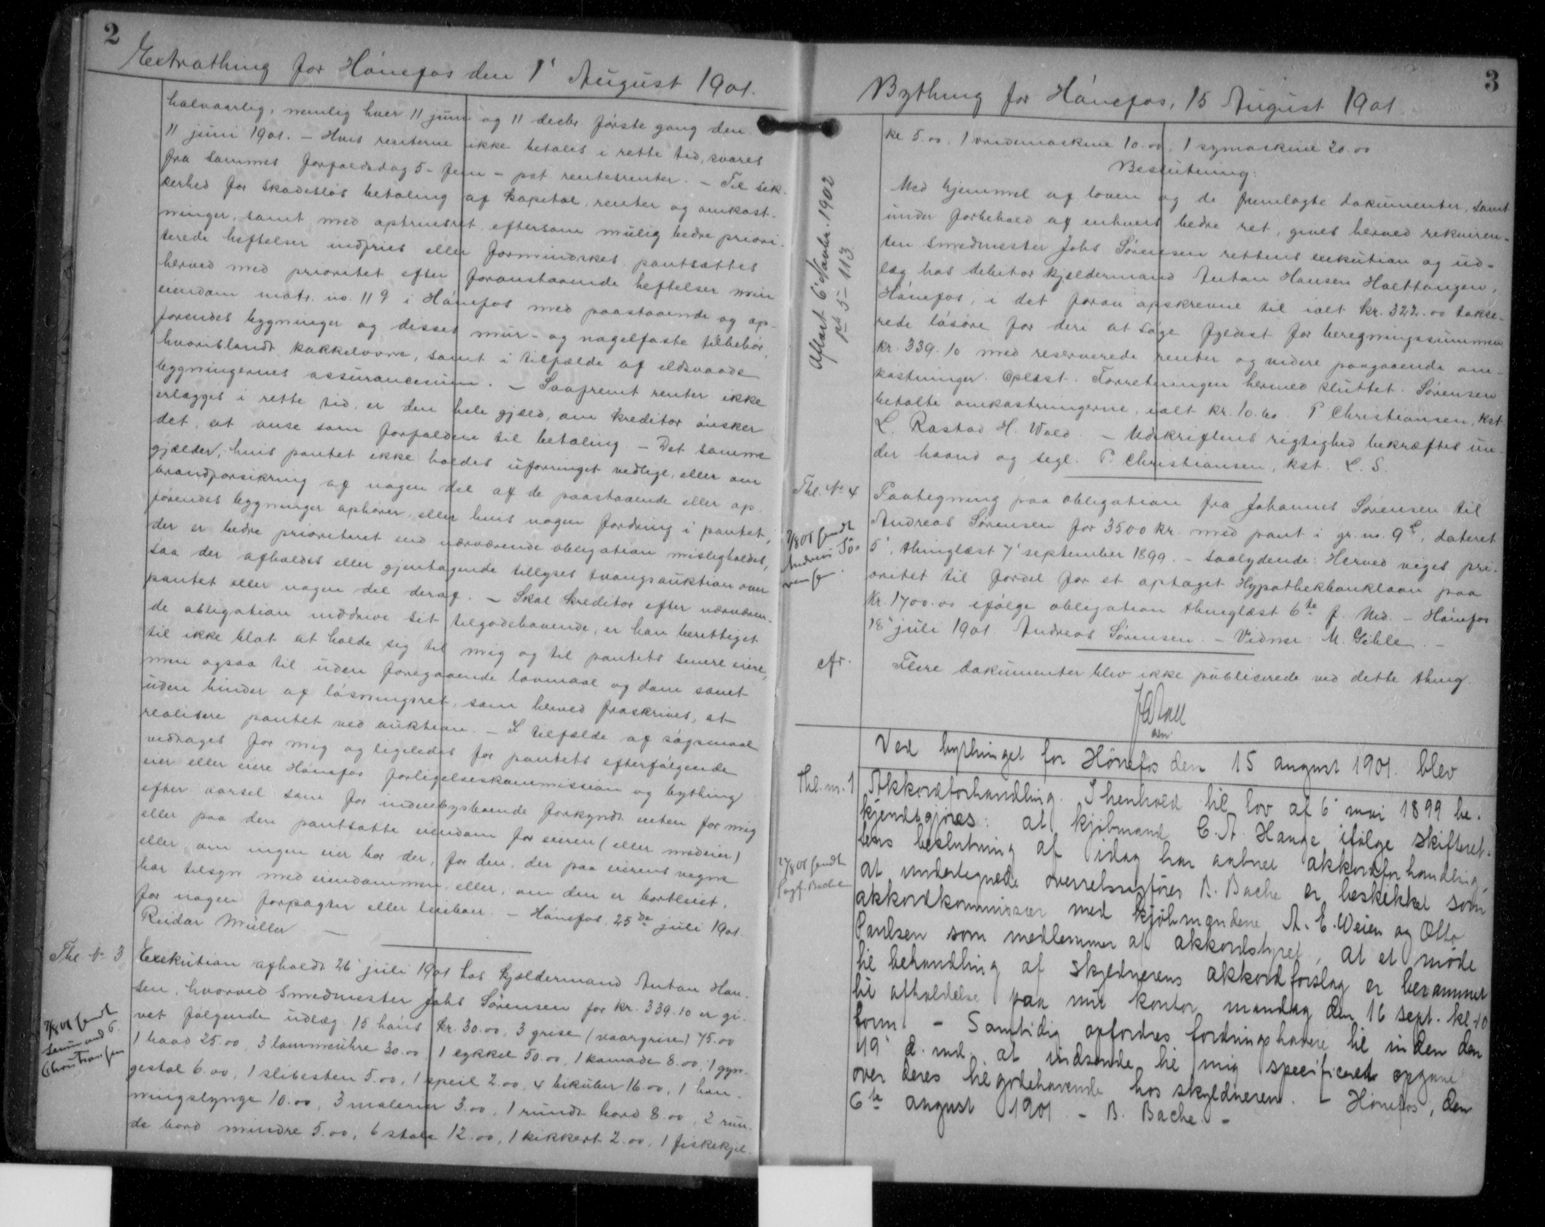 2
Extrathing for Hönefos den 1' August 1901.
halvaarlig, nemlig hver 11 juni og 11 decbr. förste gang den
11 juni 1901. – Hvis renterne ikke betales i rette tid, svares
fra sammes forfaldsdag 5 – fem – pct rentesrenter. – Til sik-
kerhed for skadeslös betaling af kapital, renter og omkost-
ninger, samt med optrinsret eftersom mulig bedre priori-
terede heftelser indfries eller formindskes pantsættes
herved med prioritet efter foranstaaende heftelser min
eiendom matr. no. 119 i Hönefos med paastaaende og op-
förendes bygninger og disses mur- og nagelfaste tilbehör,
hvoriblandt kakkelovne, samt i tilfælde af ildsvaade
bygningernes assurancesum. – Saafremt renter ikke
erlægges i rette tid, er den hele gjæld, om kreditor önsker
det, at anse som forfalden til betaling – Det samme
gjælder, hvis pantet ikke holdes uforringet vedlige, eller om
brandforsikring af nogen del af de paastaaende eller op-
förendes bygninger ophører, eller hvis nogen fordring i pantet,
der er bedre prioriteret end nærværende obligation misligholdes,
saa der afholdes eller gjentagende tillyses tvangsauktion over
pantet eller nogen del deraf. – Skal kreditor efter nærværen-
de obligation inddrive sit tilgodehavende, er han berettiget
til ikke blot at holde sig til mig og til pantets senere eiere,
men ogsaa til uden foregaaende lovmaal og dom samt
uden hinder af lösningsret, som herved fraskrives, at
realisere pantet ved auktion. – I tilfælde af sögsmaal
vedtages for mig og ligeledes for pantets efterfölgende
eier eller eiere Hönefos forligelseskommission og bything
efter varsel som for indenbysboende forkyndt enten for mig
eller paa den pantsatte eiendom for eieren (eller medeier)
eller, om ingen eier bor der, for den, der paa eierens vegne
har tilsyn med eiendommen, eller, om den er bortleiet,
for nogen forpagter eller leiboer. – Hönefos, 25de juli 1901.
Reidar Müller –
Thl. No 3
Exekution afholdt 26' juli 1901 hos kjældermand Anton Han-
sen, hvorved smedmester Johs Sörensen for kr. 339.10 er gi-
vet følgende udlæg: 15 höns kr. 30.00, 3 grise (vaargrise) 75.00
1 baad 25.00, 3 lommeuhre 30.00, 1 cykkel 50.00, 1 komode 8.00, 1 gyn-
gestol 6.00, 1 slibesten 5.00, 1 speil 2.00, 4 bikuber 16.00, 1 hon-
ningslynge 10.00, 3 malerier 3.00, 1 rundt bord 8.00, 2 run-
de bord mindre 5.00, 6 stole 12.00, 1 kikkert 2.00, 1 fiskekjel
3
Bything for Hönefos, 15 August 1901
kr 5.00, 1 vridemaskine 10.00, 1 symaskine 20.00
Beslutning:
Med hjemmel af loven og de fremlagte dokumenter, samt
under forbehold af enhvers bedre ret, gives herved rekviren-
ten smedmester Johs Sörensen rettens exekution og ud-
læg hos debitor kjældermand Anton Hansen Holttangen,
Hönefos, i det foran opskrevne til ialt kr. 322.00 takse-
rede lösöre for deri at söge fyldest for beregningssummen
kr. 339.10 med reserverede renter og videre paagaaende om-
kostninger. Oplæst. Forretningen hermed sluttet. Sörensen
betalte omkostningerne, ialt kr. 10.60. P Christiansen, kst.
L. Rastad H. Wold. – Udskriftens rigtighed bekræftes un-
der haand og segl. P. Christiansen, kst. L. S.
Aflæst 6' Novbr. 1902
pk 5 – 113
Thl. No 4
Paategning paa obligation fra Johannes Sörensen til
Andreas Sörensen for 3500 kr. med pant i gr. no. 9, dateret
5', thinglæst 7' september 1899. – saalydende: Herved viges pri-
oritet til fordel for et optaget Hypothekbanklaan paa
Kr. 1700.00 ifölge obligation thinglæst 6te f. Md. – Hönefos
18' juli 1901 Andreas Sörensen. – Vidner: M. Gihle. –
cfr.
Flere dokumenter blev ikke publiserede ved dette thing.
Ved bythinget for Hönefos den 15 august 1901 blev
Thl. nr. 1
Akkordforhandling. I henhold til lov af 6' mai 1899 be-
kjendtgjøres: at kjøbmand C. A. Hauge ifölge skifteret-
tens beslutning af idag har aabnet akkordforhandling,
at undertegnede overretssagfører B. Bache er beskikket som
akkordkommissær med kjøbmændene A. E. Weien og Otto
Paulsen som medlemmer af akkordstyret, at et møde
til behandling af skyldnerens akkordforslag er berammet
til afholdelse paa mit kontor mandag den 16 sept. kl. 10
form. – Samtidig opfordres fordringshavere til inden den
19' d. md. at indsende til mig specificeret opgave
over deres tilgodehavende hos skyldneren. – Hönefos, den
6te august 1901 – B. Bache –